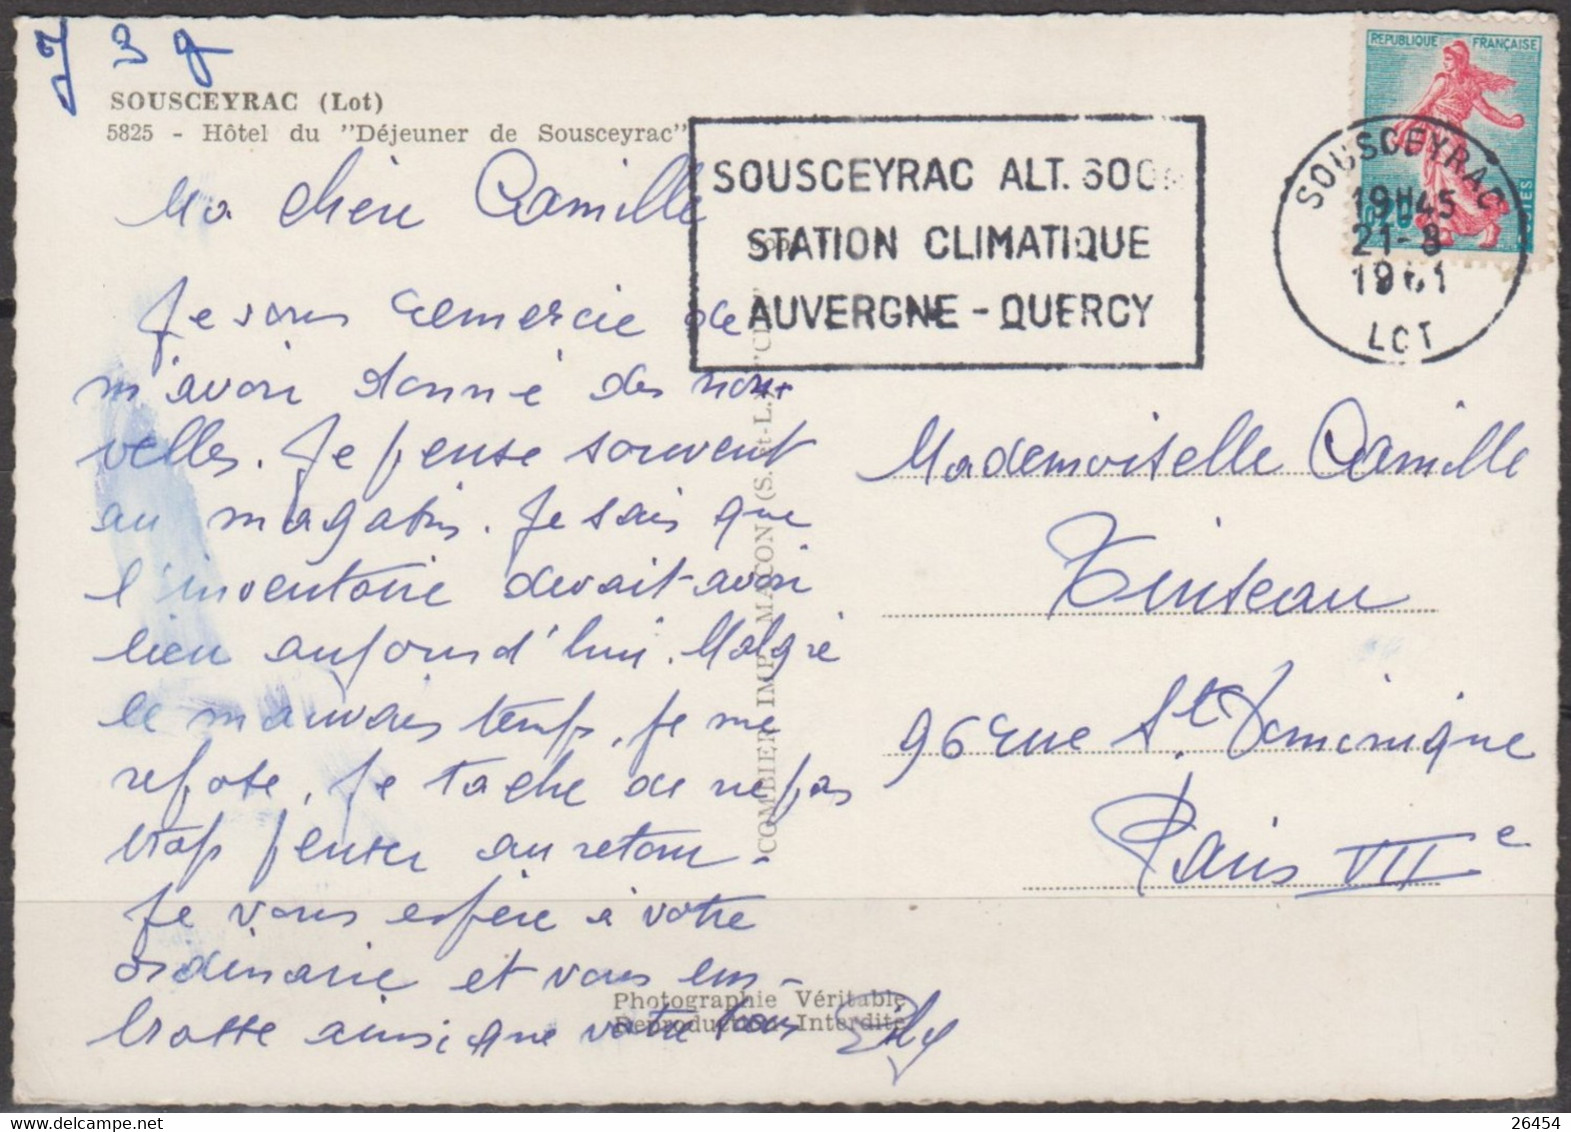 J 3 g
SOUSCEYRAC (Lot)
5825 - Hôtel du "Déjeuner de Sousceyrac"
Ma chère Camille
Je vous remercie de
m'avoir donné des nou-
velles. Je pense souvent
au magasin. Je sais que
l'inventaire devait avoir
lieu aujourd'hui. Malgré
le mauvais temps, je me
repose, je tache de ne pas
trop penser au retour -
Je vous espère à votre
ordinaire et vous em-
brasse ainsi que votre
SOUSCEYRAC ALT. 600m
STATION CLIMATIQUE
AUVERGNE - QUERCY
REPUBLIQUE FRANÇAISE
0,20
POSTES
SOUSCEYRAC
19H45
21-8
1961
LOT
Mademoiselle Camille
Tinseau
96 rue St. Dominique
Paris VIIe
COMBIER IMP. MACON (S.-et-L.) "CIM"
Photographie Véritable
Reproduction Interdite
26454